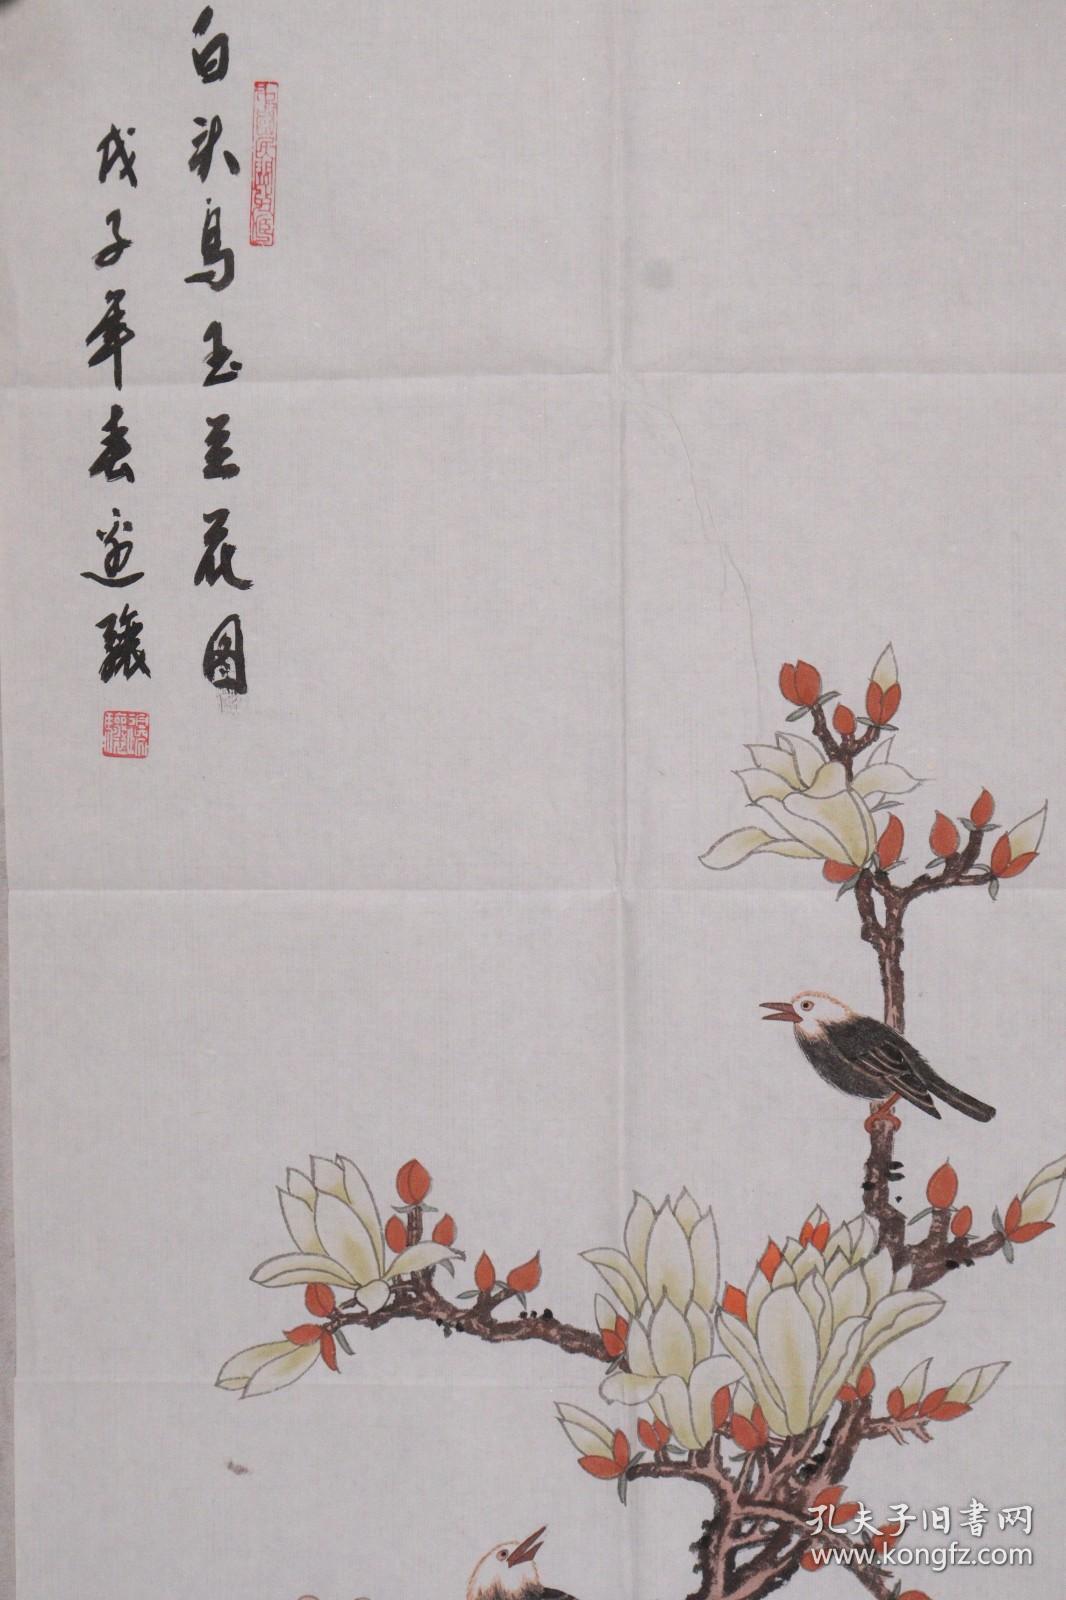 白头鸟玉兰花图
戊子年春边骧
孔夫子旧书网
www.kongfz.com